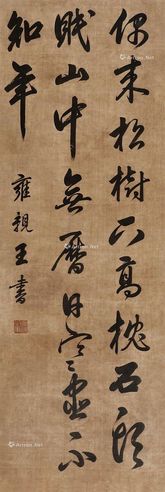 偶来松樹下高枕石頭
眠山中無曆日寒盡不
知年
雍親王書